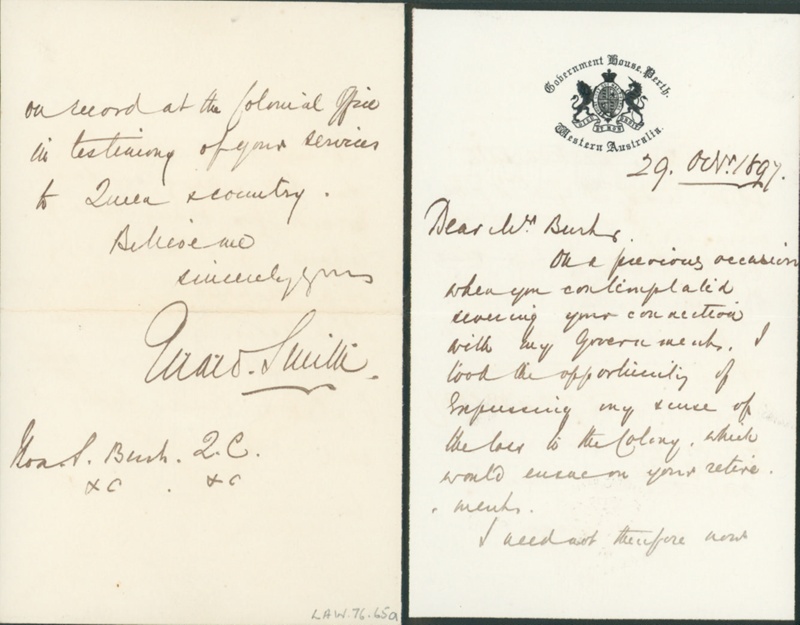 on record at the Colonial Office
in testimony of your services
to Queen & country.
Believe me
sincerely yours
Gerard Smith.
Hon. S. Burt. Q.C.
&c . &c
LAW.76.65a
Government House, Perth.
Western Australia.
29. Octr. 1897.
Dear Mr. Burt,
On a previous occasion
when you contemplated
severing your connection
with my Government, I
took the opportunity of
Expressing my sense of
the loss to the Colony, which
would ensue on your retire.
. ment.
I need not therefore now